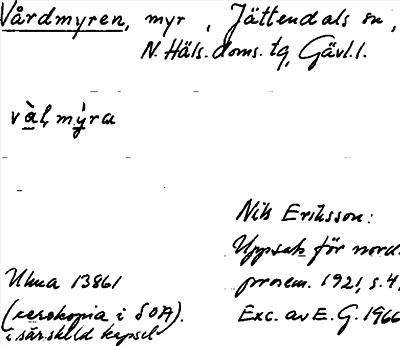 Vårdmyren, myr, Jättendals sn,
N. Häls. doms. tg, Gävl. l.
vàḷmỳra
Nils Eriksson:
Uppsats för nord.
prosem. 1921, s. 4,
Ulma 13861
(xerokopia i SOA).
i särskild kapsel
Exc. av E. G. 1966